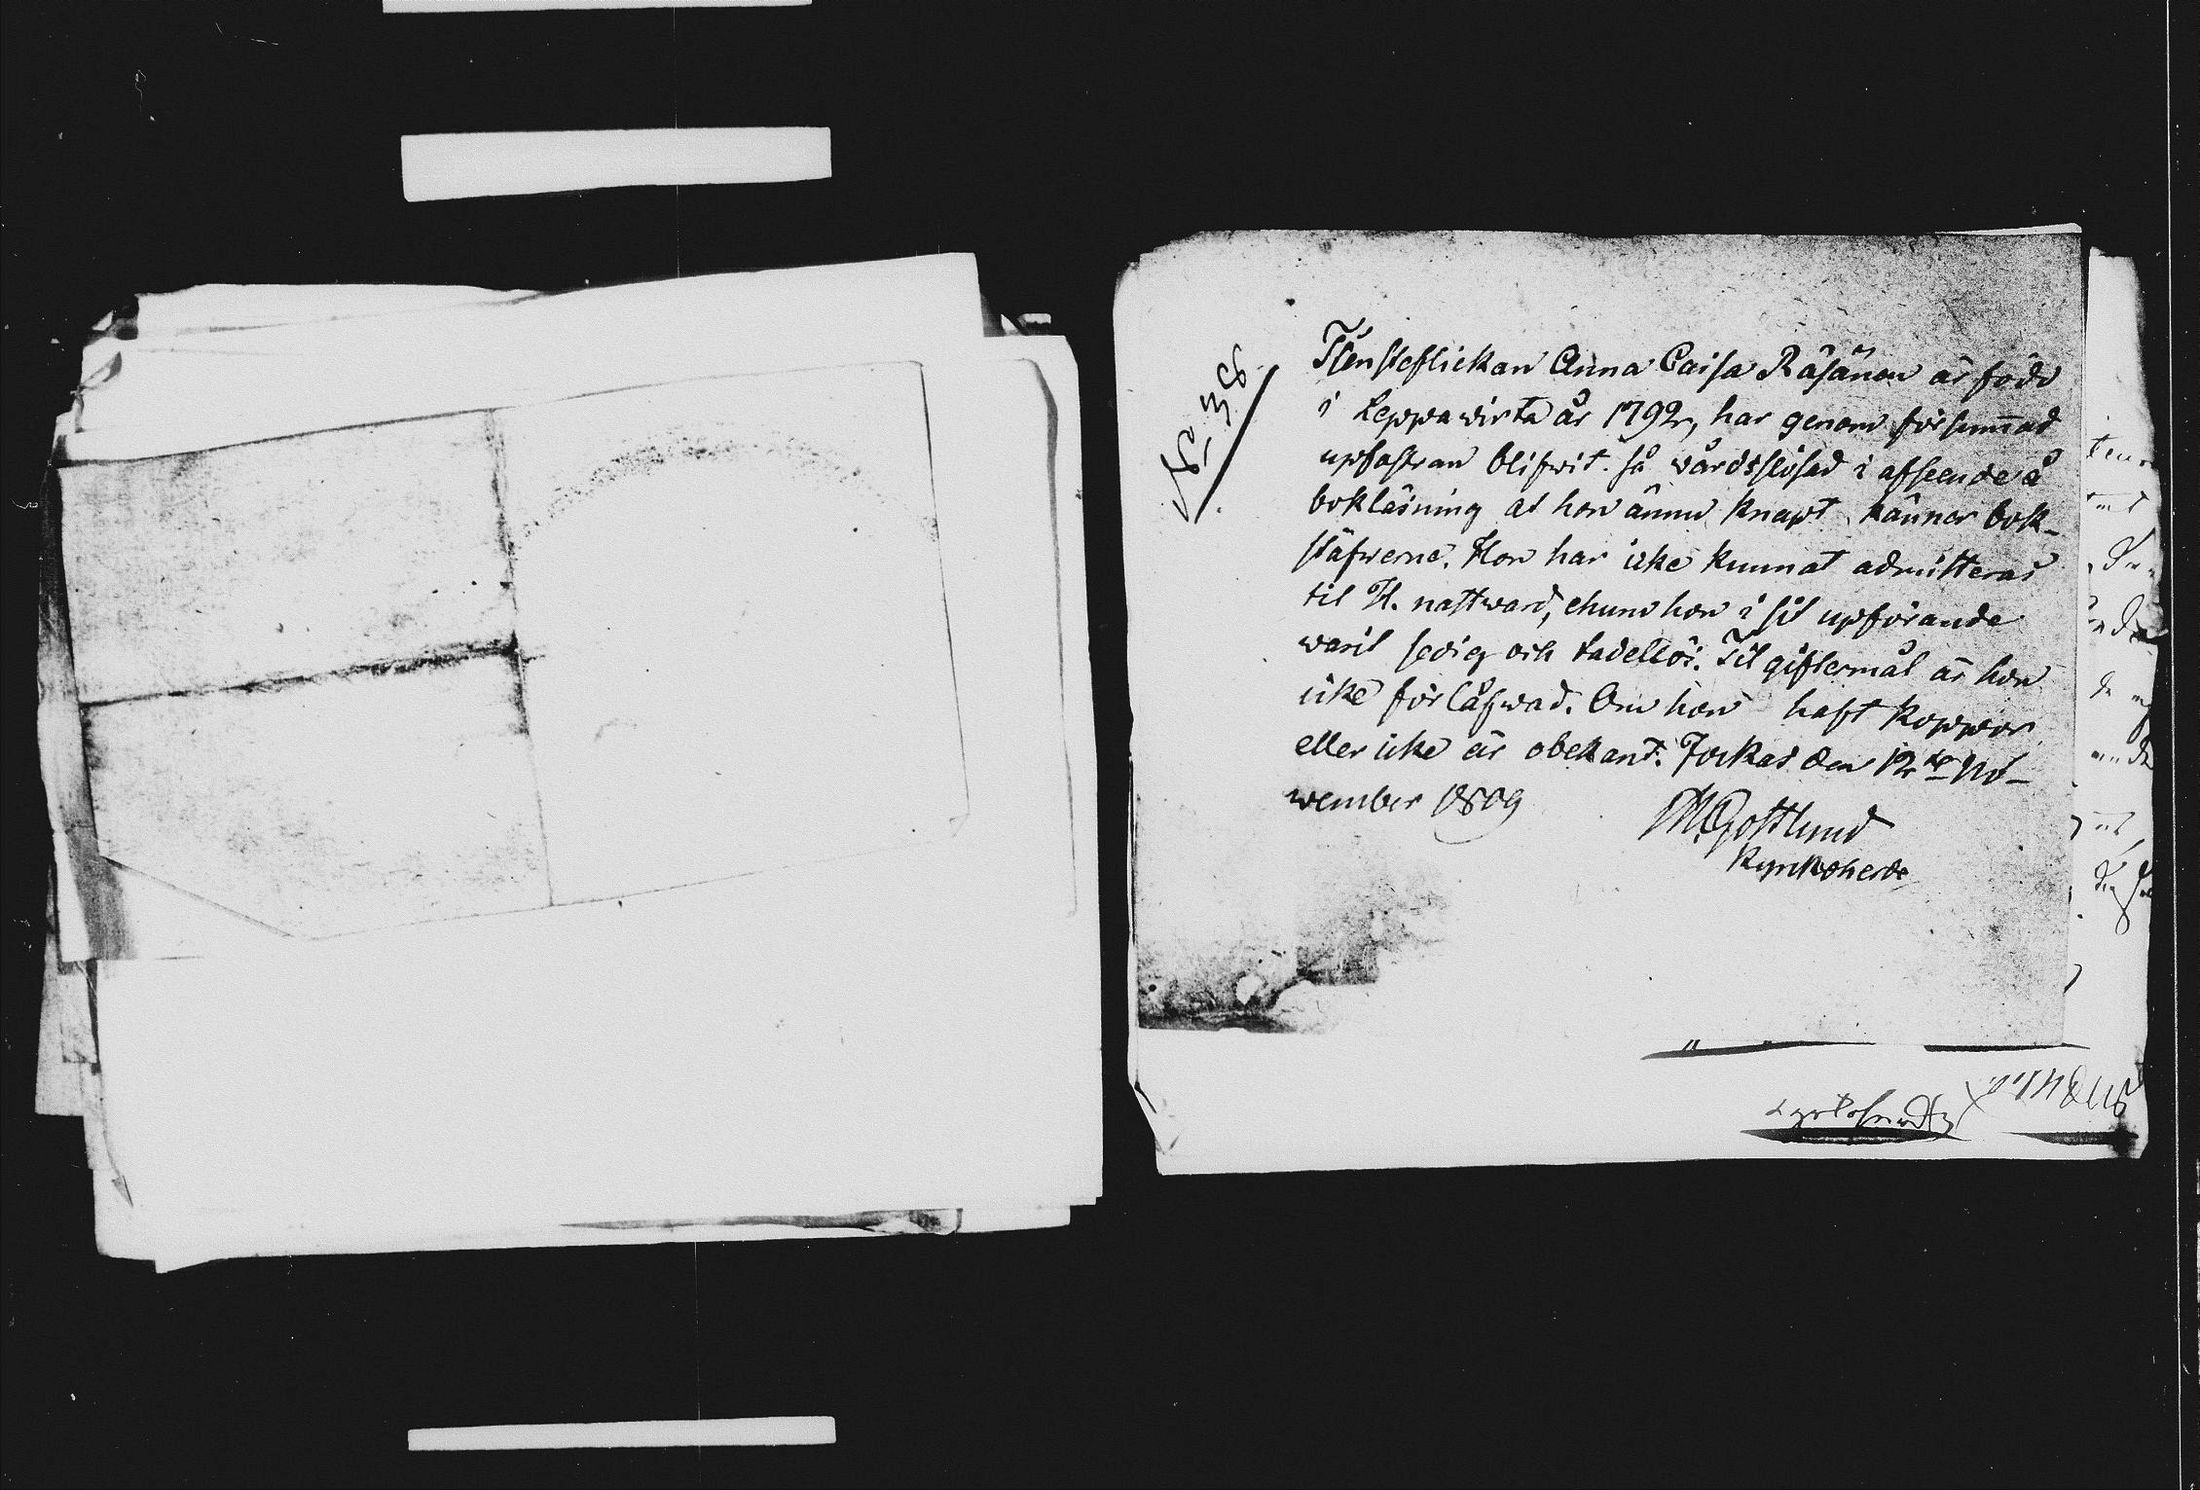 N: 36
Tjensteflickan Anna Caisa Räsänen är född
i Leppawirta år 1792, har genom försum̅ad
upfostran blifwit så wårdslösad i afseende å
bokläsning at hon ännu knapt känner bok-
stäfwerne. Hon har icke kunnat admitteras
til H. nattward, ehuru hon i sit upförande
warit sedig och tadellös. Til giftermål är hon
icke förlåfwad. Om hon haft koppor
eller icke är obekant. Jockas den 12te No-
wember 1809
M. Gottlund
Kyrkoherde